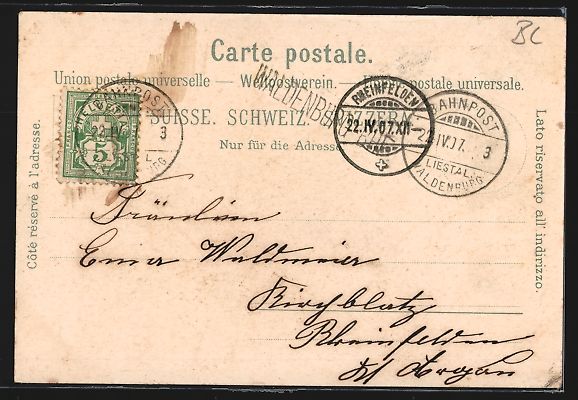 BL
Carte postale.
Union postale universelle — Weltpostverein. — postale universale.
SUISSE. SCHWEIZ. SVIZZERA.
Nur für die Adresse
Côté réservé à l'adresse.
Lato riservato all' indirizzo.
HELVETIA
5
BAHNPOST
22 IV
3
WALDENBURG
RHEINFELDEN
22.IV.07.XII
BAHNPOST
22 IV.07. 3
LIESTAL.
WALDENBURG
Fräulein
Emma Waldmeier
Kirchblatz
Rheinfelden
Kt Argau